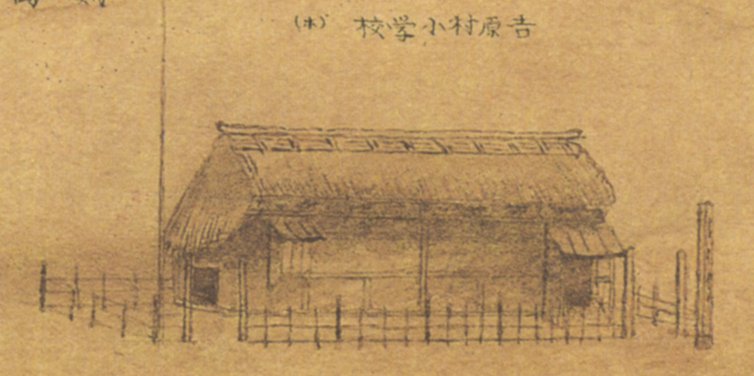 吉原村小学校 (ホ)